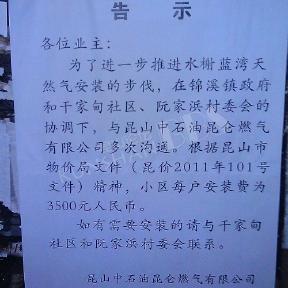 告示
各位业主：
为了进一步推进水榭蓝湾天
然气安装的步伐，在锦溪镇政府
和干家甸社区、阮家浜村委会的
协调下，与昆山中石油昆仑燃气
有限公司多次沟通，根据昆山市
物价局文件（昆价2011年101号
文件）精神，小区每户安装费为
3500元人民币。
如有需要安装的请与干家甸
社区和阮家浜村委会联系。
昆山中石油昆仑燃气有限公司